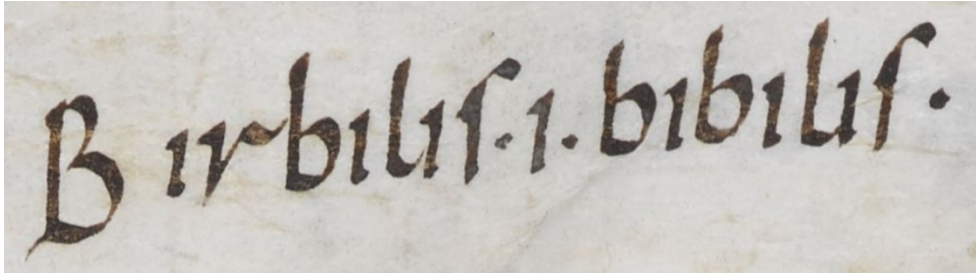 Birbilis·i·bibilis·